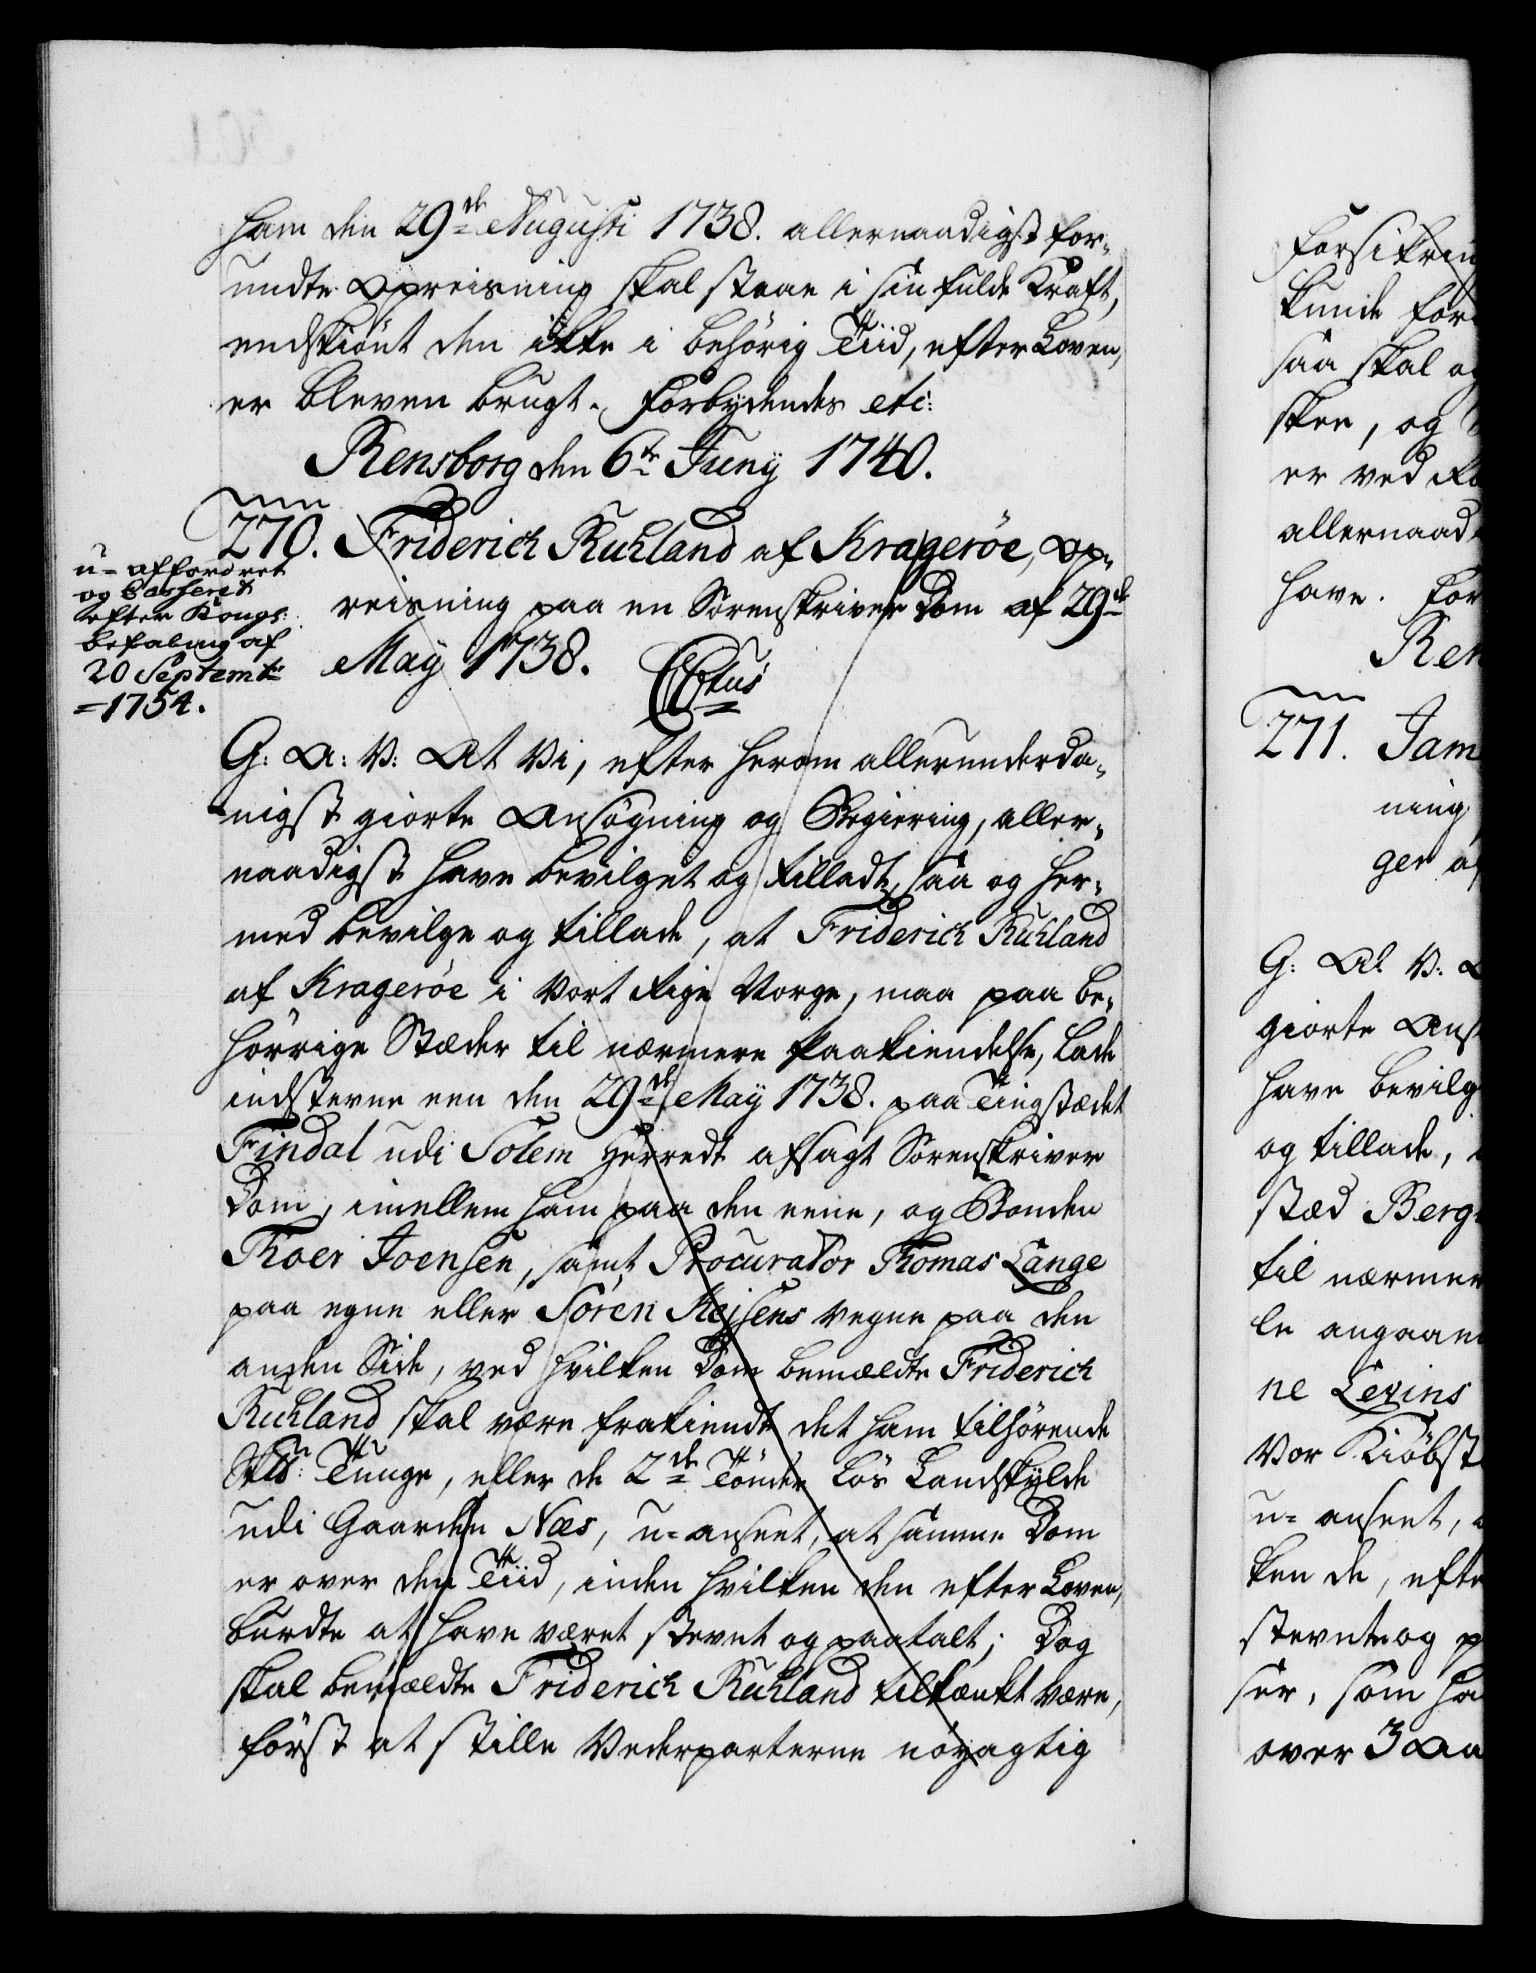 ham den 29de Augusti 1738. allernaadigst for-
undte Opreisning skal staae i sin fulde Kraft,
endskiønt den ikke i behörig Tiid, efter Loven,
er bleven brugt. Forbydendes etc:
Rensborg den 6te Juny 1740.
270. Friderich Ruhland af Kragerøe, Op-
reisning paa en Sorenskriver Dom af 29de
May 1738.
u-affordret
og Casseret
efter Kongl:
befaling af
20 Septembr
=1754.
G: A: V: At Vi, efter herom allerunderda-
nigst giorte Ansøgning og Begiering, aller-
naadigst have bevilget og tilladt, saa og her-
med bevilge og tillade, at Friderich Ruhland
af Kragerøe i Vort Rige Norge, maa paa be-
hörrige Stæder til nærmere Paakiendelse, lade
indstevne een den 29de May 1738. paa Tingstædet
Findal udi Solem Herredt afsagt Sorenskriver
Dom, imellem ham paa den eene, og Bonden
Thoer Joensen, samt Procurator Thomas Lange
paa egne eller Sören Rejsens vegne paa den
anden Side, ved hvilken Dom bemældte Friderich
Ruhland skal være frakiendt det ham tilhörende
Tunge, eller de 2de Tönder Løs Landskylde
udi Gaarden Næs, u-anseet, at samme Dom
er over den Tiid, inden hvilken den efter Loven,
burdte at have været stevnt og paatalt; Dog
skal bemældte Friderich Ruhland tiltænkt være,
först at stille Vederparterne nöyagtig
Forsikring
kunde for
saa skal og
skee, og
er ved
allernaad
have. For
Ren
271. Jam
ning
ger af
G: A: V:
giorte Ans
have bevilg
og tillade,
stæd Berg
til nærmer
le angaaen
ne Levins
Vor Kiöbst
u-anseet,
ken de, efte
stevnte og p
ser, som ha
over 3 Aa